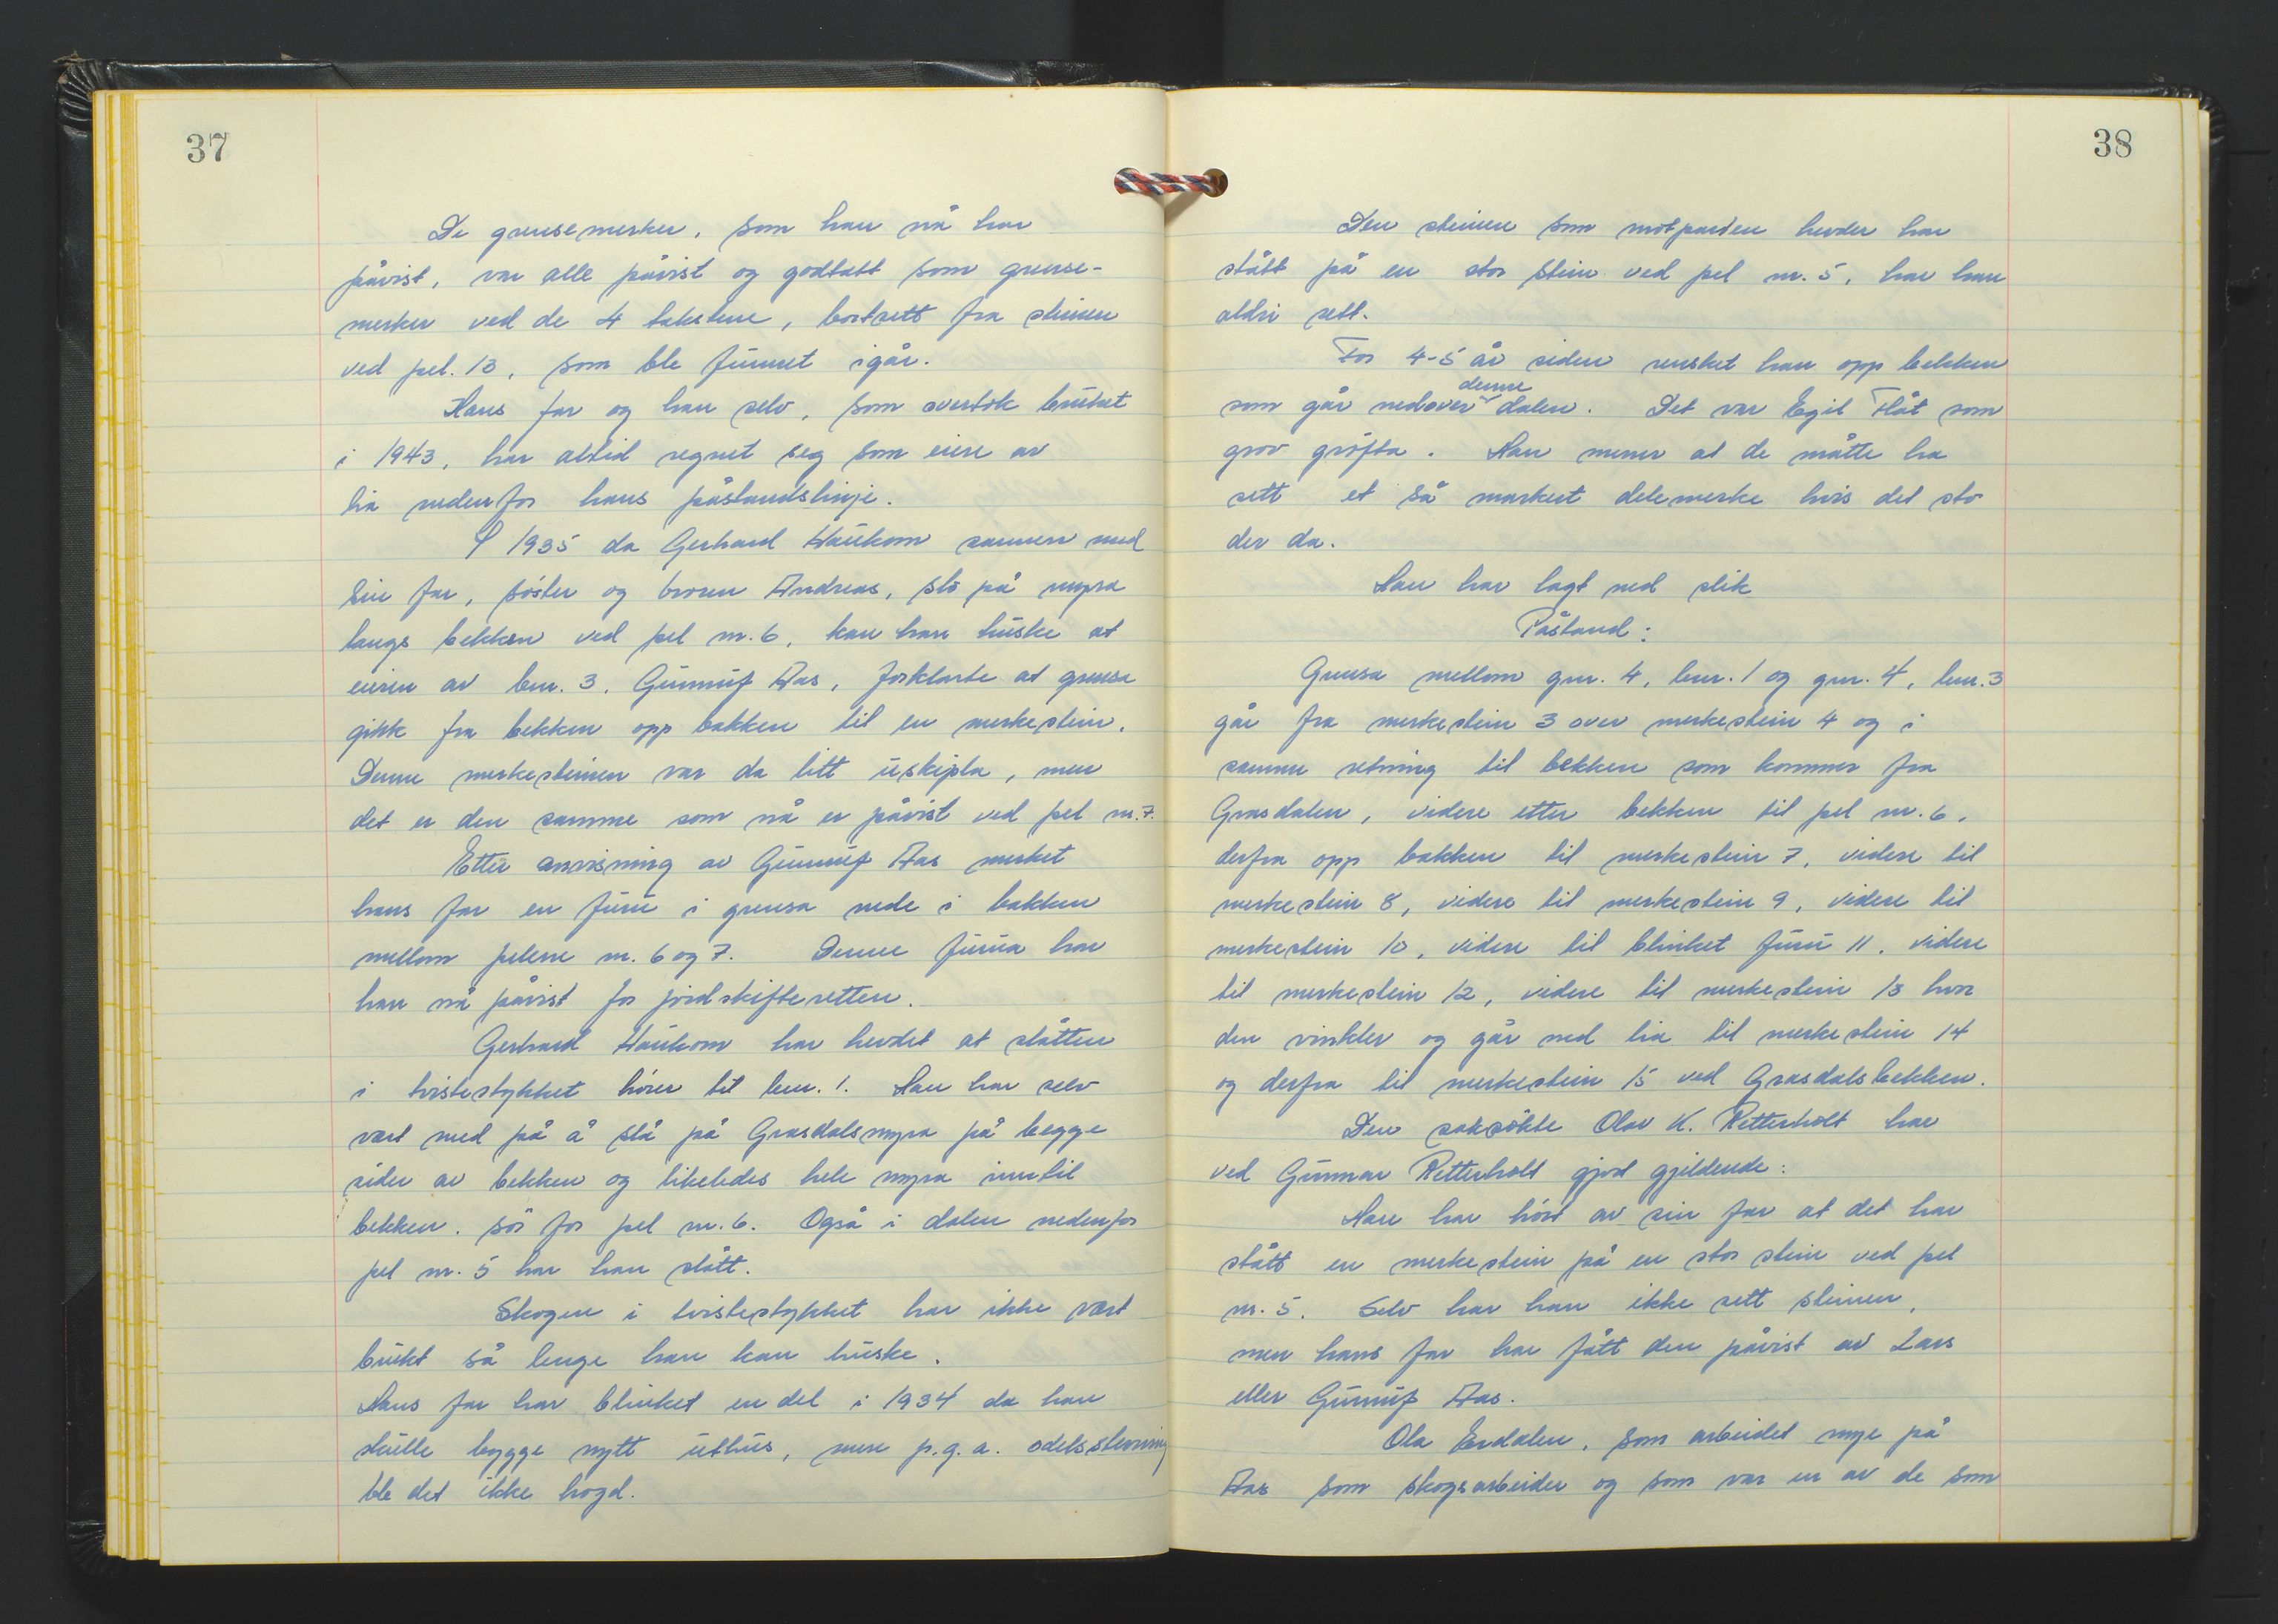 37
De grensemerker, som han nå har
påvist, var alle påvist og godtatt som grense-
merker ved de 4 takstene, bortsett fra steinen
ved pel. 13, som ble funnet igår.
Hans far og han selv, som overtok bruket
i 1943, har alltid regnet seg som eiere av
lia nedenfor hans påstandslinje.
I 1935 da Gerhard Haukom sammen med
sin far, søster og broren Andreas, slo på myra
langs bekken ved pel nr. 6, kan han huske at
eieren av bnr. 3, Gunnuf Aas, forklarte at grensa
gikk fra bekken opp bakken til en merkestein.
Denne merkesteinen var da litt uskipla, men
det er den samme som nå er påvist ved pel nr. 7.
Etter anvisning av Gunnuf Aas merket
hans far en furu i grensa nede i bakken
mellom pelene nr. 6 og 7. Denne furua har
han nå påvist for jordskifteretten.
Gerhard Haukom har hevdet at slåtten
i tvistestykket hører til bnr. 1. Han har selv
vært med på å slå på Grasdalsmyra på begge
sider av bekken og likeledes hele myra inntil
bekken. sør for pel nr. 6. Også i dalen nedenfor
pel nr. 5 har han slått.
Skogen i tvistestykket har ikke vært
brukt så lenge han kan huske.
Hans far har blinket en del i 1934 da han
skulle bygge nytt uthus, men p.g.a. odelsstevning
ble det ikke hogd.
38
Den steinen som motparten hevder har
stått på en stor stein ved pel nr. 5, har han
aldri sett.
For 4-5 år siden rensket han opp bekken
som går nedover denne dalen. Det var Egil Flåt som
grov grøfta. Han mener at de måtte ha
sett et så markert delemerke hvis det sto
der da.
Han har lagt ned slik
Påstand:
Grensa mellom gnr. 4, bnr. 1 og gnr. 4, bnr. 3
går fra merkestein 3 over merkestein 4 og i
samme retning til bekken som kommer fra
Grasdalen, videre etter bekken til pel nr. 6,
derfra opp bakken til merkestein 7, videre til
merkestein 8, videre til merkestein 9, videre til
merkestein 10, videre til blinket furu 11, videre
til merkestein 12, videre til merkestein 13 hvor
den vinkler og går ned lia til merkestein 14
og derfra til merkestein 15 ved Grasdalsbekken.
Den saksøkte Olav K. Retterholt har
ved Gunnar Retterholt gjort gjeldende:
Han har hørt av sin far at det har
stått en merkestein på en stor stein ved pel
nr. 5. Selv har han ikke sett steinen,
men hans far har fått den påvist av Lars
eller Gunnuf Aas.
Ola Erdalen, som arbeidet mye på
Aas som skogsarbeider og som var en av de som